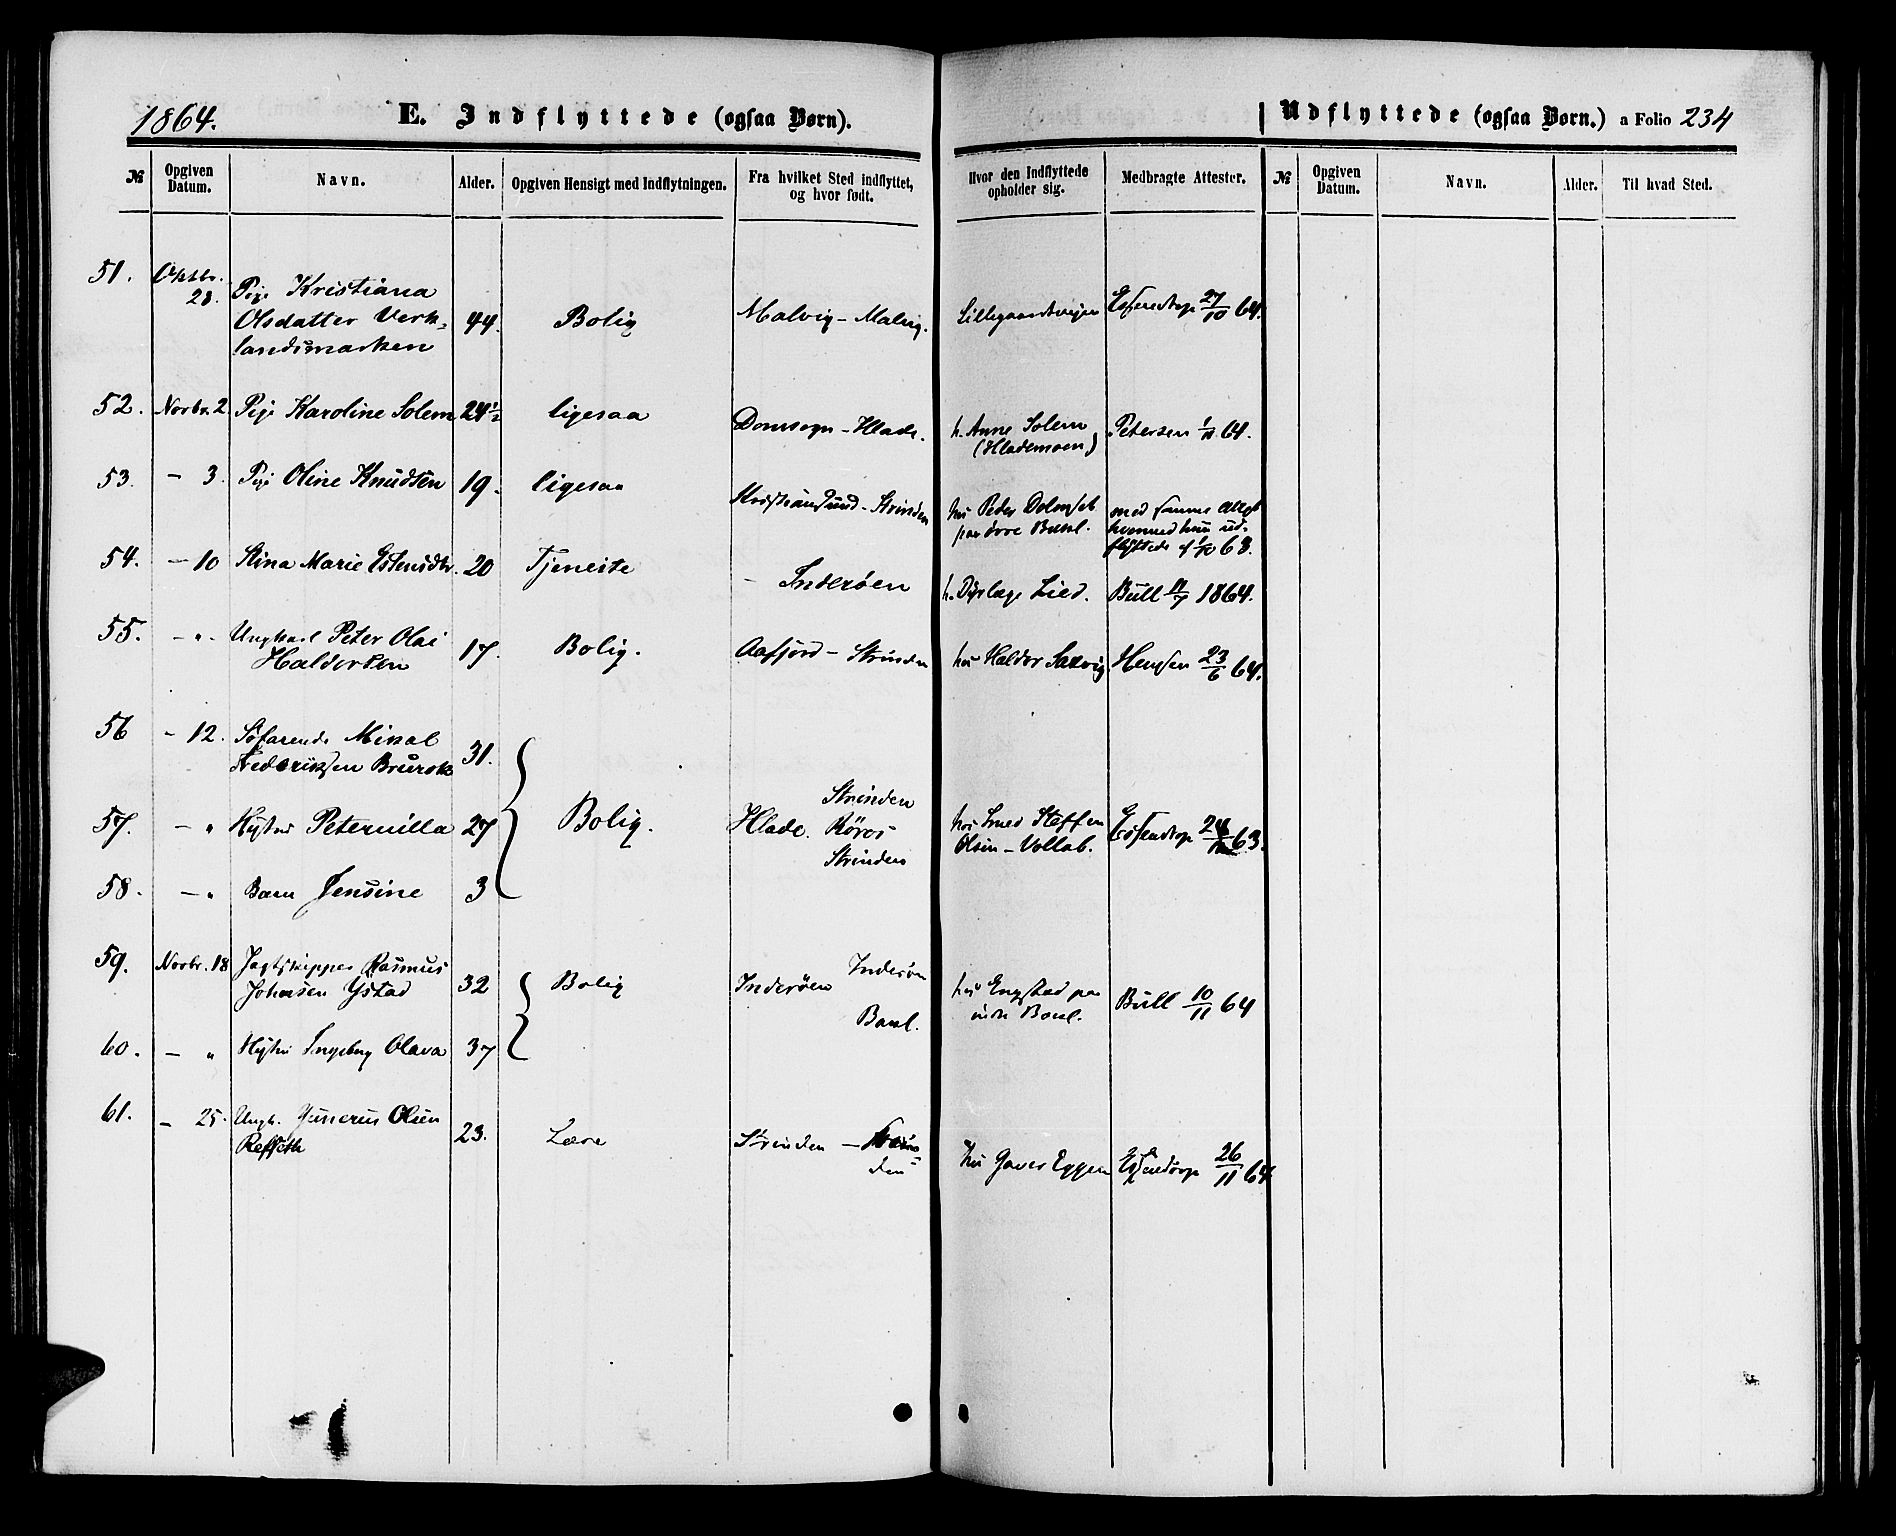 1864. E. Indflyttede (ogsaa Børn). Udflyttede (ogsaa Børn.) a Folio 234
№ Opgiven Datum. Navn. Alder. Opgiven Hensigt med Indflytningen. Fra hvilket Sted indflyttet, og hvor født. Hvor den Indflyttede opholder sig. Medbragte Attester. № Opgiven Datum. Navn. Alder. Til hvad Sted.
51. Oktbr. 28. Pige Kristiana
Olsdatter Verk-
landsmarken 44. Bolig Malvig - Malvig. Essendrop 27/10 64.
52. Novbr. 2. Pige Karoline Solem 24½ ligesaa Domsogn - Hlade. h. Anne Solem
(Hlademoen) Petersen 1/11 64.
53. - 3. Pige Oline Knudsen 19. ligesaa Kristiansund - Strinden hos Peter
paa øvre Bakl. med samme Attest
hvormed hun ud-
flyttede 63.
54. - 10 Stina Marie Estensdtr. 20 Tjeneste - Inderøen h. Dyrlæge Lied. Bull 11/7 1864.
55. - " - Ungkarl Peter Olai
Haldorsen 17. Bolig. Aafjord - Strinden hos Haldor Saxvig Hensen 23/6 64.
56 - 12. Søfarende Mikal
Frederiksen Brurok 31.
57. - " Hustru Peternilla 27 Bolig. Hlade. Strinden
Røros
Strinden hos Smed Steffen
Olsen - Vollab. Essendrop 63.
58. - " Barn Jensine 3
59. Novbr. 18 Jagtskipper Rasmus
Johnsen Ystad 32 Bolig Inderøen Inderøen hos Engstad paa
nedre Bakl. Bull 10/11 64
60. - " Hustru Ingebrg Olava 37 Bakl.
61. - 25. Ungk. Gunerus Olsen
Refseth 23. Lære Strinden - Strin-
den hos Eggen Essendrop 26/11 64